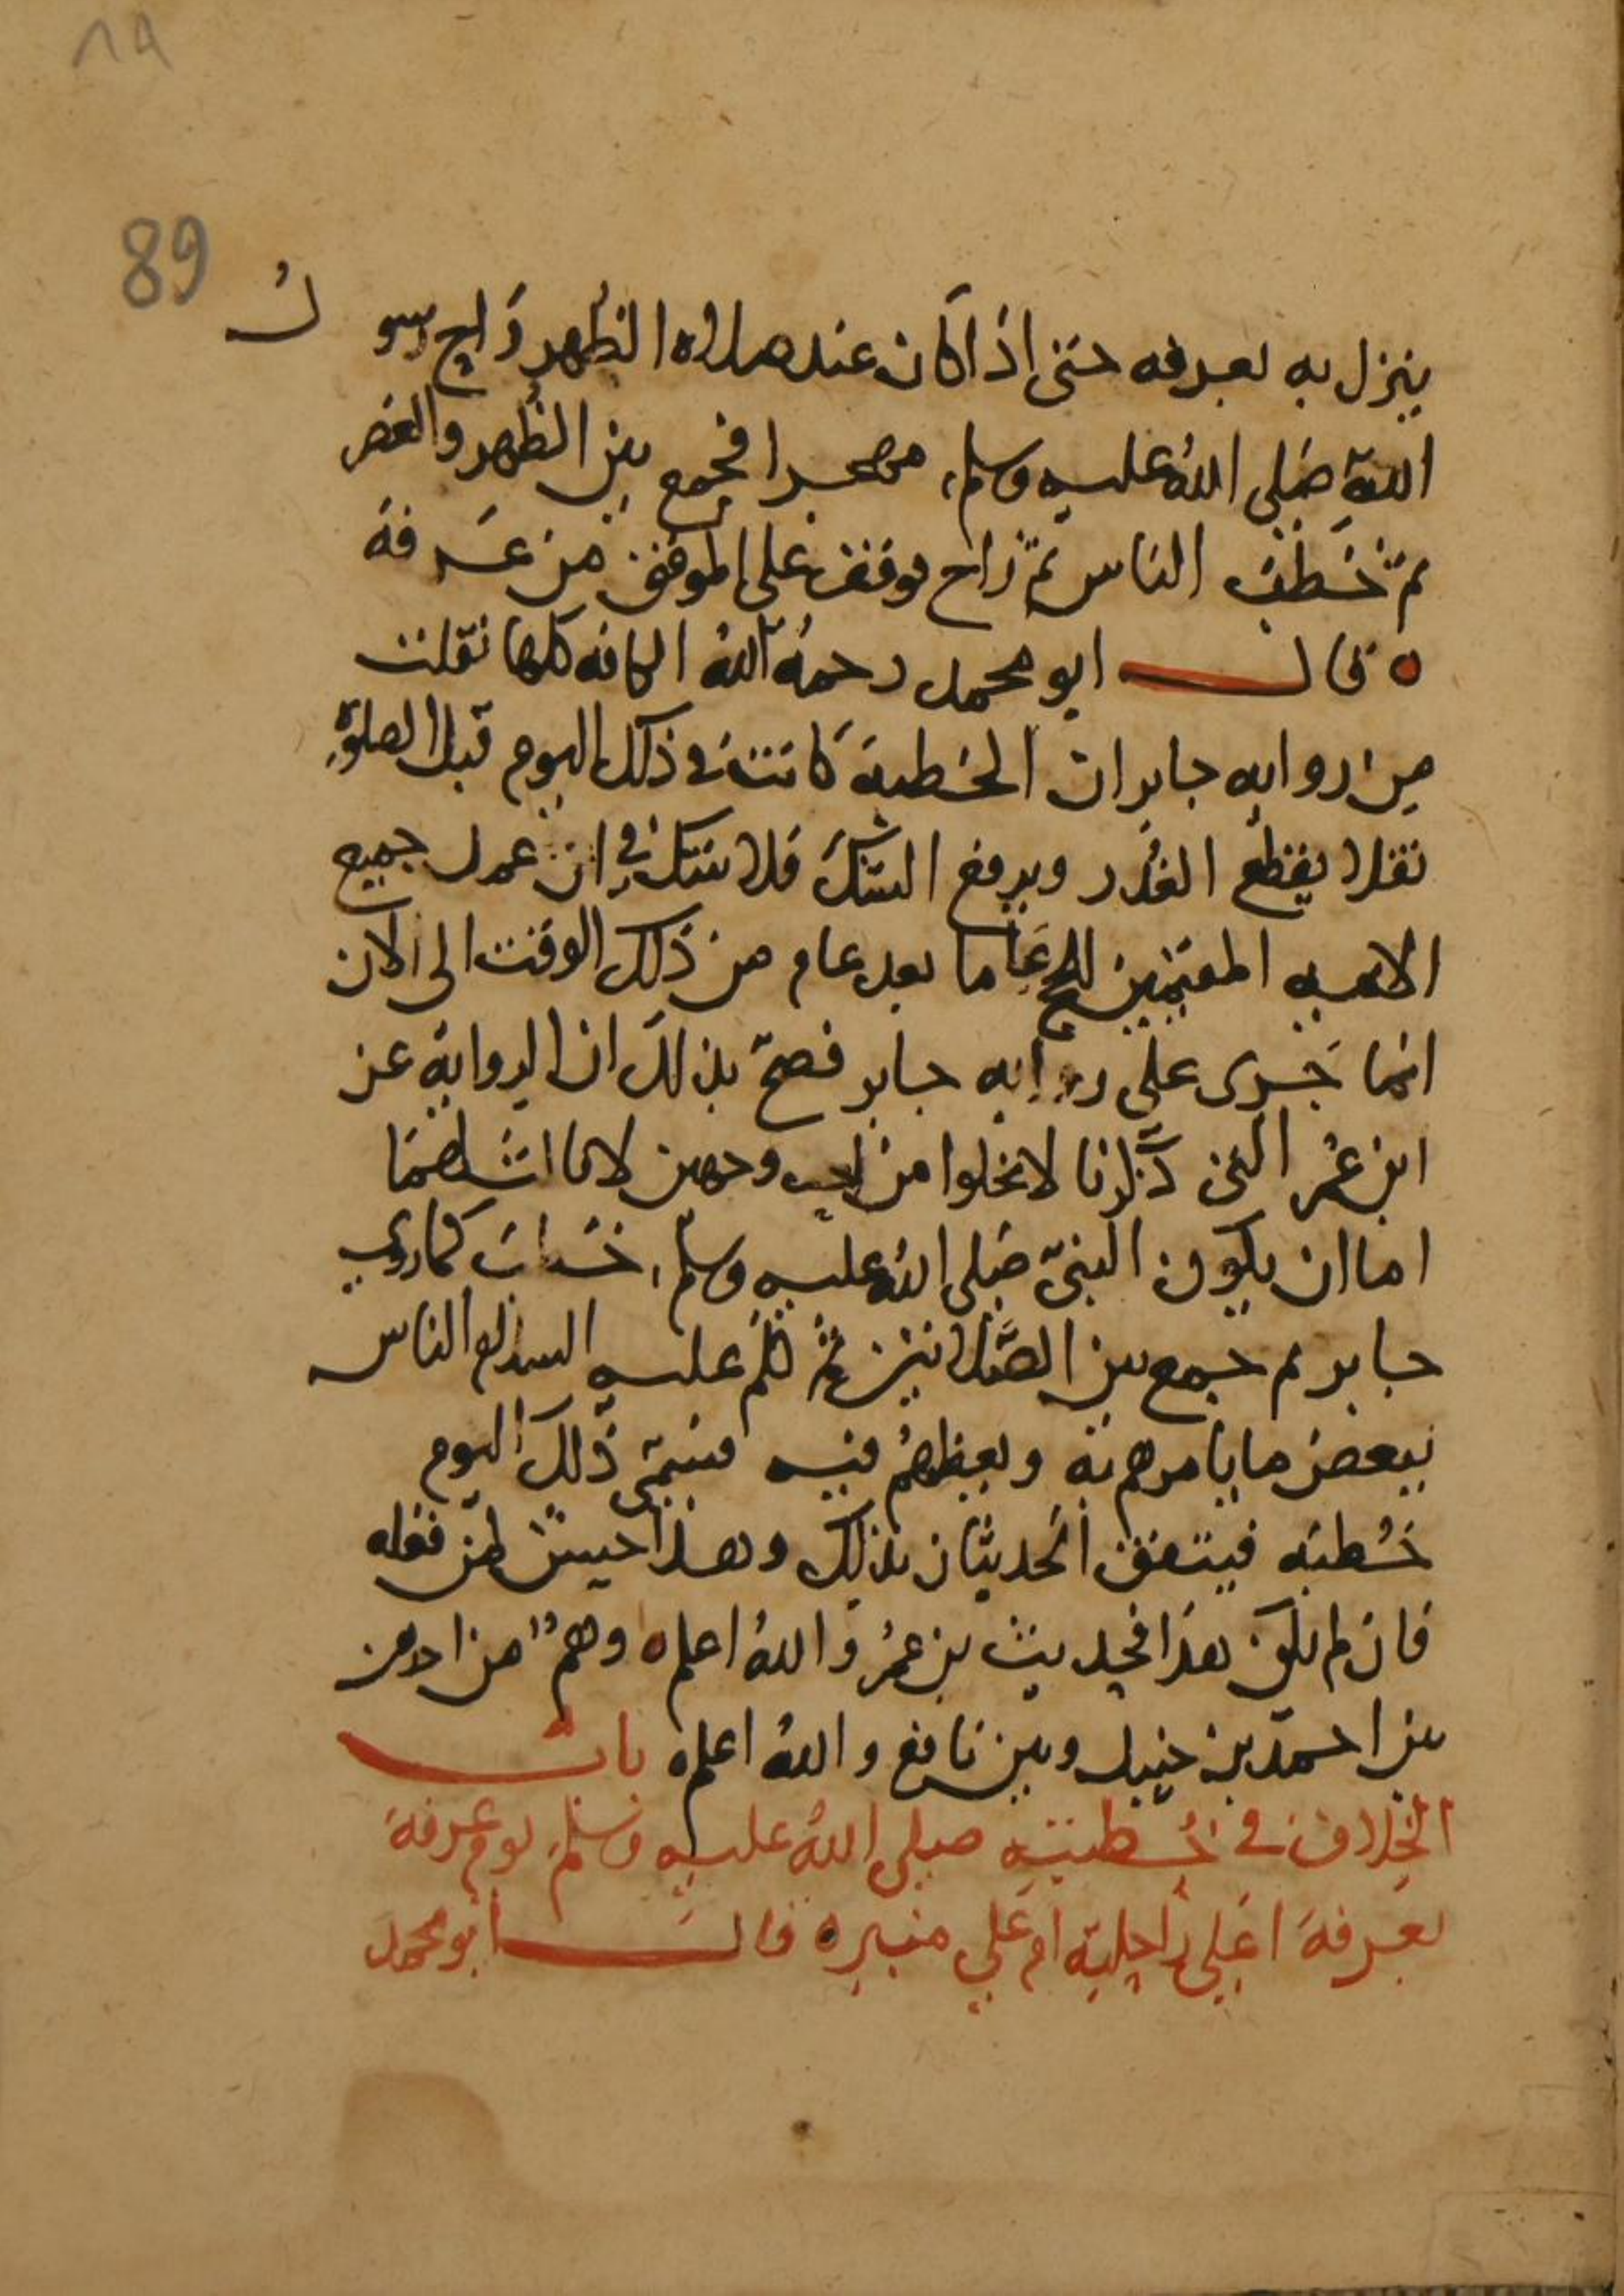 ١٩
89
ينزل به بعرفه حتى اذا كان عند صلاه الظهر راح رسول
الله صلى الله عليه وسلم مهجرا فجمع بين الظهر والعصر
ثم خطب الناس ثم راح فوقف على الموقف من عرفة
ه قال ابو محمد رحمه الله الكافه كلها نقلت
من روايه جابر ان الخطبة كانت في ذلك اليوم قبل الصلوة
نقلا يقطع العذر ويرفع الشك فلا شك في ان عمل جميع
الايمه المقيمين للحج عاما بعد عام من ذلك الوقت الى الان
انما جرى على روايه جابر فصح بذلك ان الرواية عن
ابن عمر التى ذكرنا لا تخلوا من احد وجهين لا ثالث لهما
اما ان يكون النبى صلى الله عليه وسلم خطب كما روي
جابر ثم جمع بين الصلاتين ثم كلم عليه السلام الناس
ببعض ما يامرهم به ويعظهم فيه فسمى ذلك اليوم
خطبه فيتفق الحديثان بذلك وهذا حسن لمن فعله
فان لم يكن هذا فحديث بن عمر والله اعلم ه وهم من احد من
بين احمد بن حنبل وبين نافع والله اعلم ه باب
الخلاف في خطبته صلى الله عليه وسلم يوم عرفة
بعرفة اعلى راحلته ام على منبره قال ابو محمد